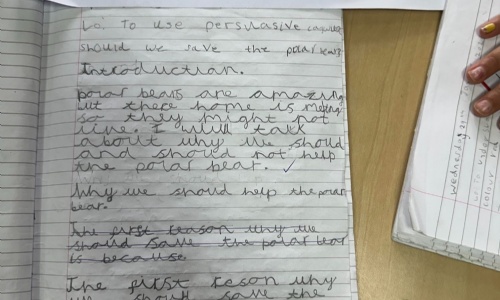 Lo. To use persuasive language
should we save the polar bears
Introduction.
polar bears are amazing
but there home is melting
so they might not
live. I will talk
about why we should
and should not help
the polar bear. ✓
Why we should help the polar
bear.
The first reason why we
should save the polar bear
is because
The first reson why
we should save the
Wednesday